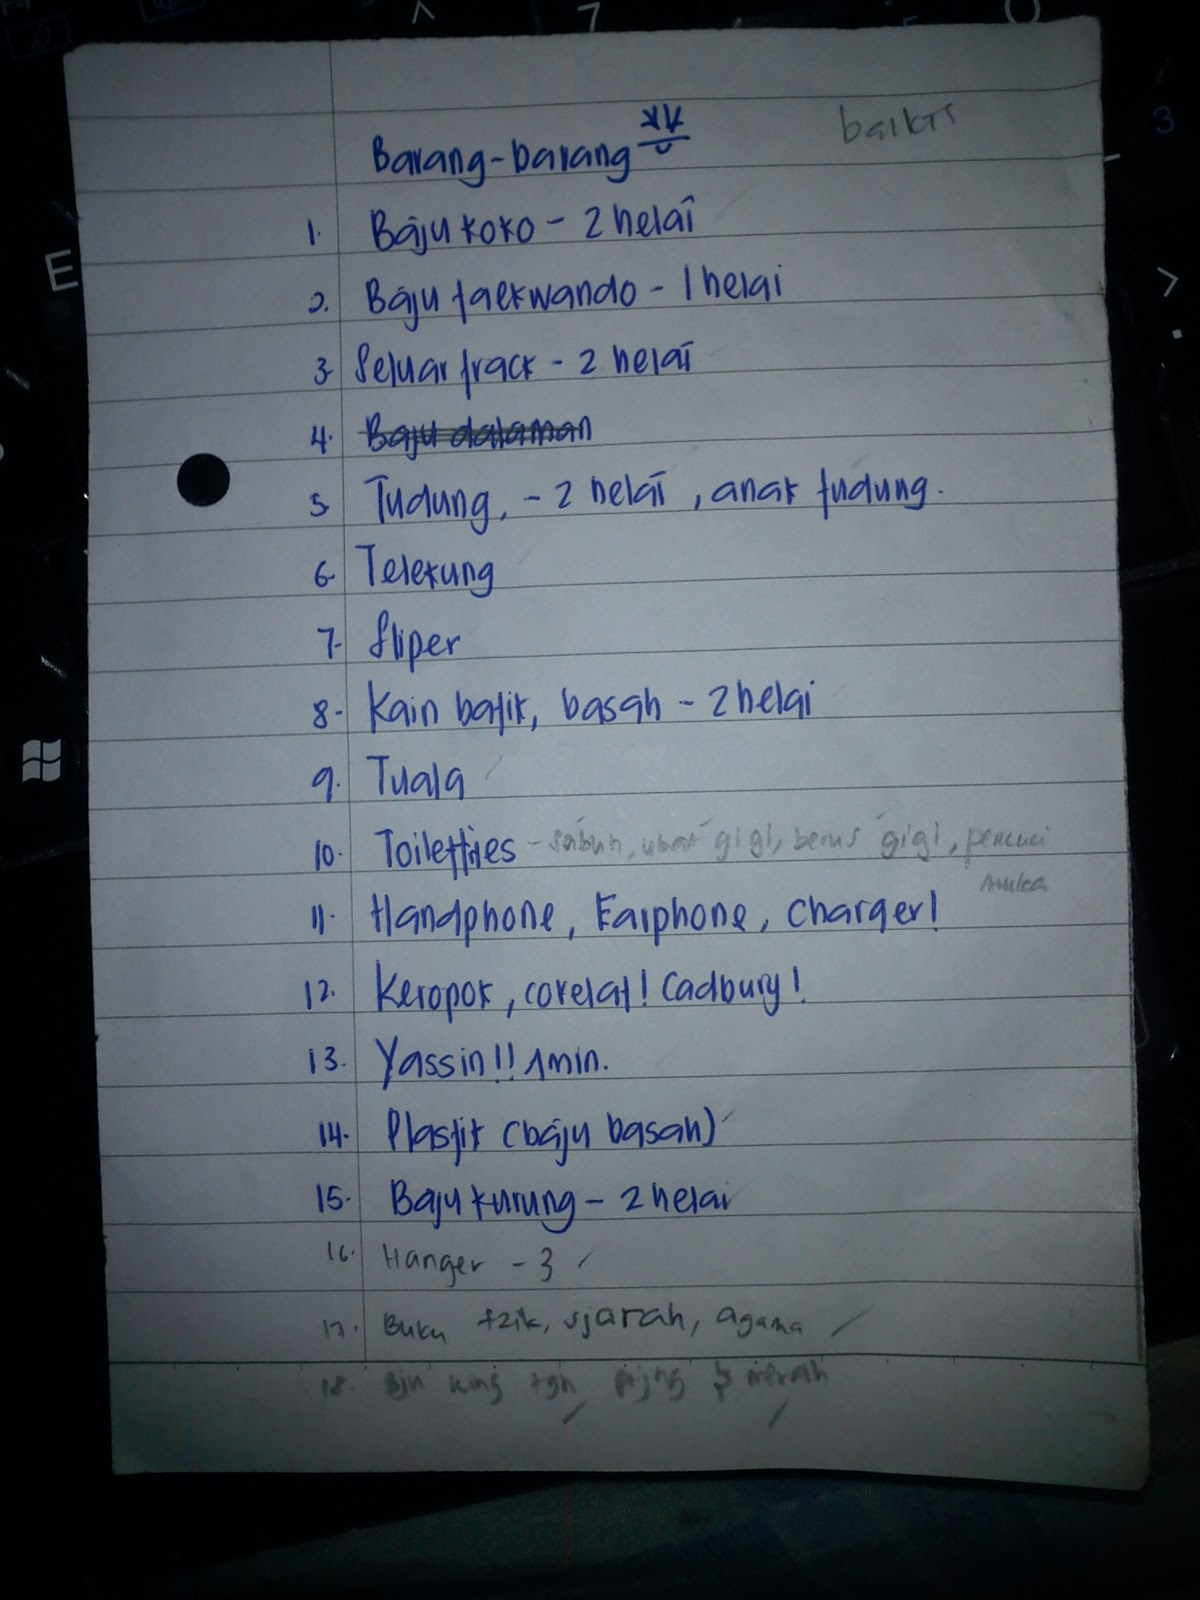 Barang-barang
1. Baju koko - 2 helai
2. Baju taekwando - 1 helai
3. Seluar track - 2 helai
4. Baju dalaman
5. Tudung, - 2 helai, anak tudung.
6. Telekung
7. Sliper
8. Kain batik, basah - 2 helai
9. Tuala
10. Toiletties - sabun, ubat gigi, berus gigi, pencuci
muka
11. Handphone, Earphone, Charger!
12. Keropok, cokelat! Cadbury!
13. Yassin!! Amin.
14. Plastik (baju basah)
15. Baju kurung - 2 helai
16. Hanger - 3
17. Buku fzik, sjarah, agama
18. merah